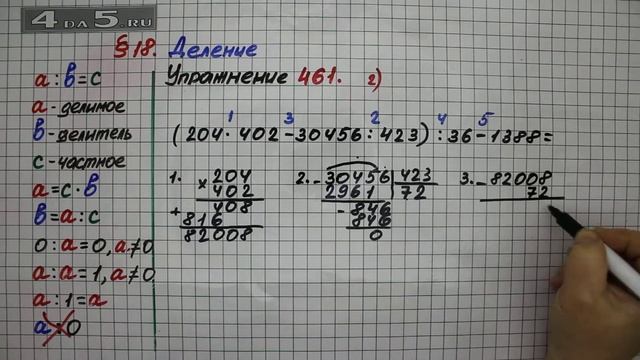 4DA5.RU
§18. Деление
Упражнение 461. 2)
a : в = c
a - делимое
в - делитель
c - частное
a = c · в
в = a : c
0 : a = 0, a ≠ 0
a : a = 1, a ≠ 0
a : 1 = a
a : 0
1 3 2 4 5
(204 · 402 - 30456 : 423) : 36 - 1388 =
1. × 204
402
+ 408
816
82008
2. - 30456 423
2961 72
- 846
846
0
3. - 82008
72